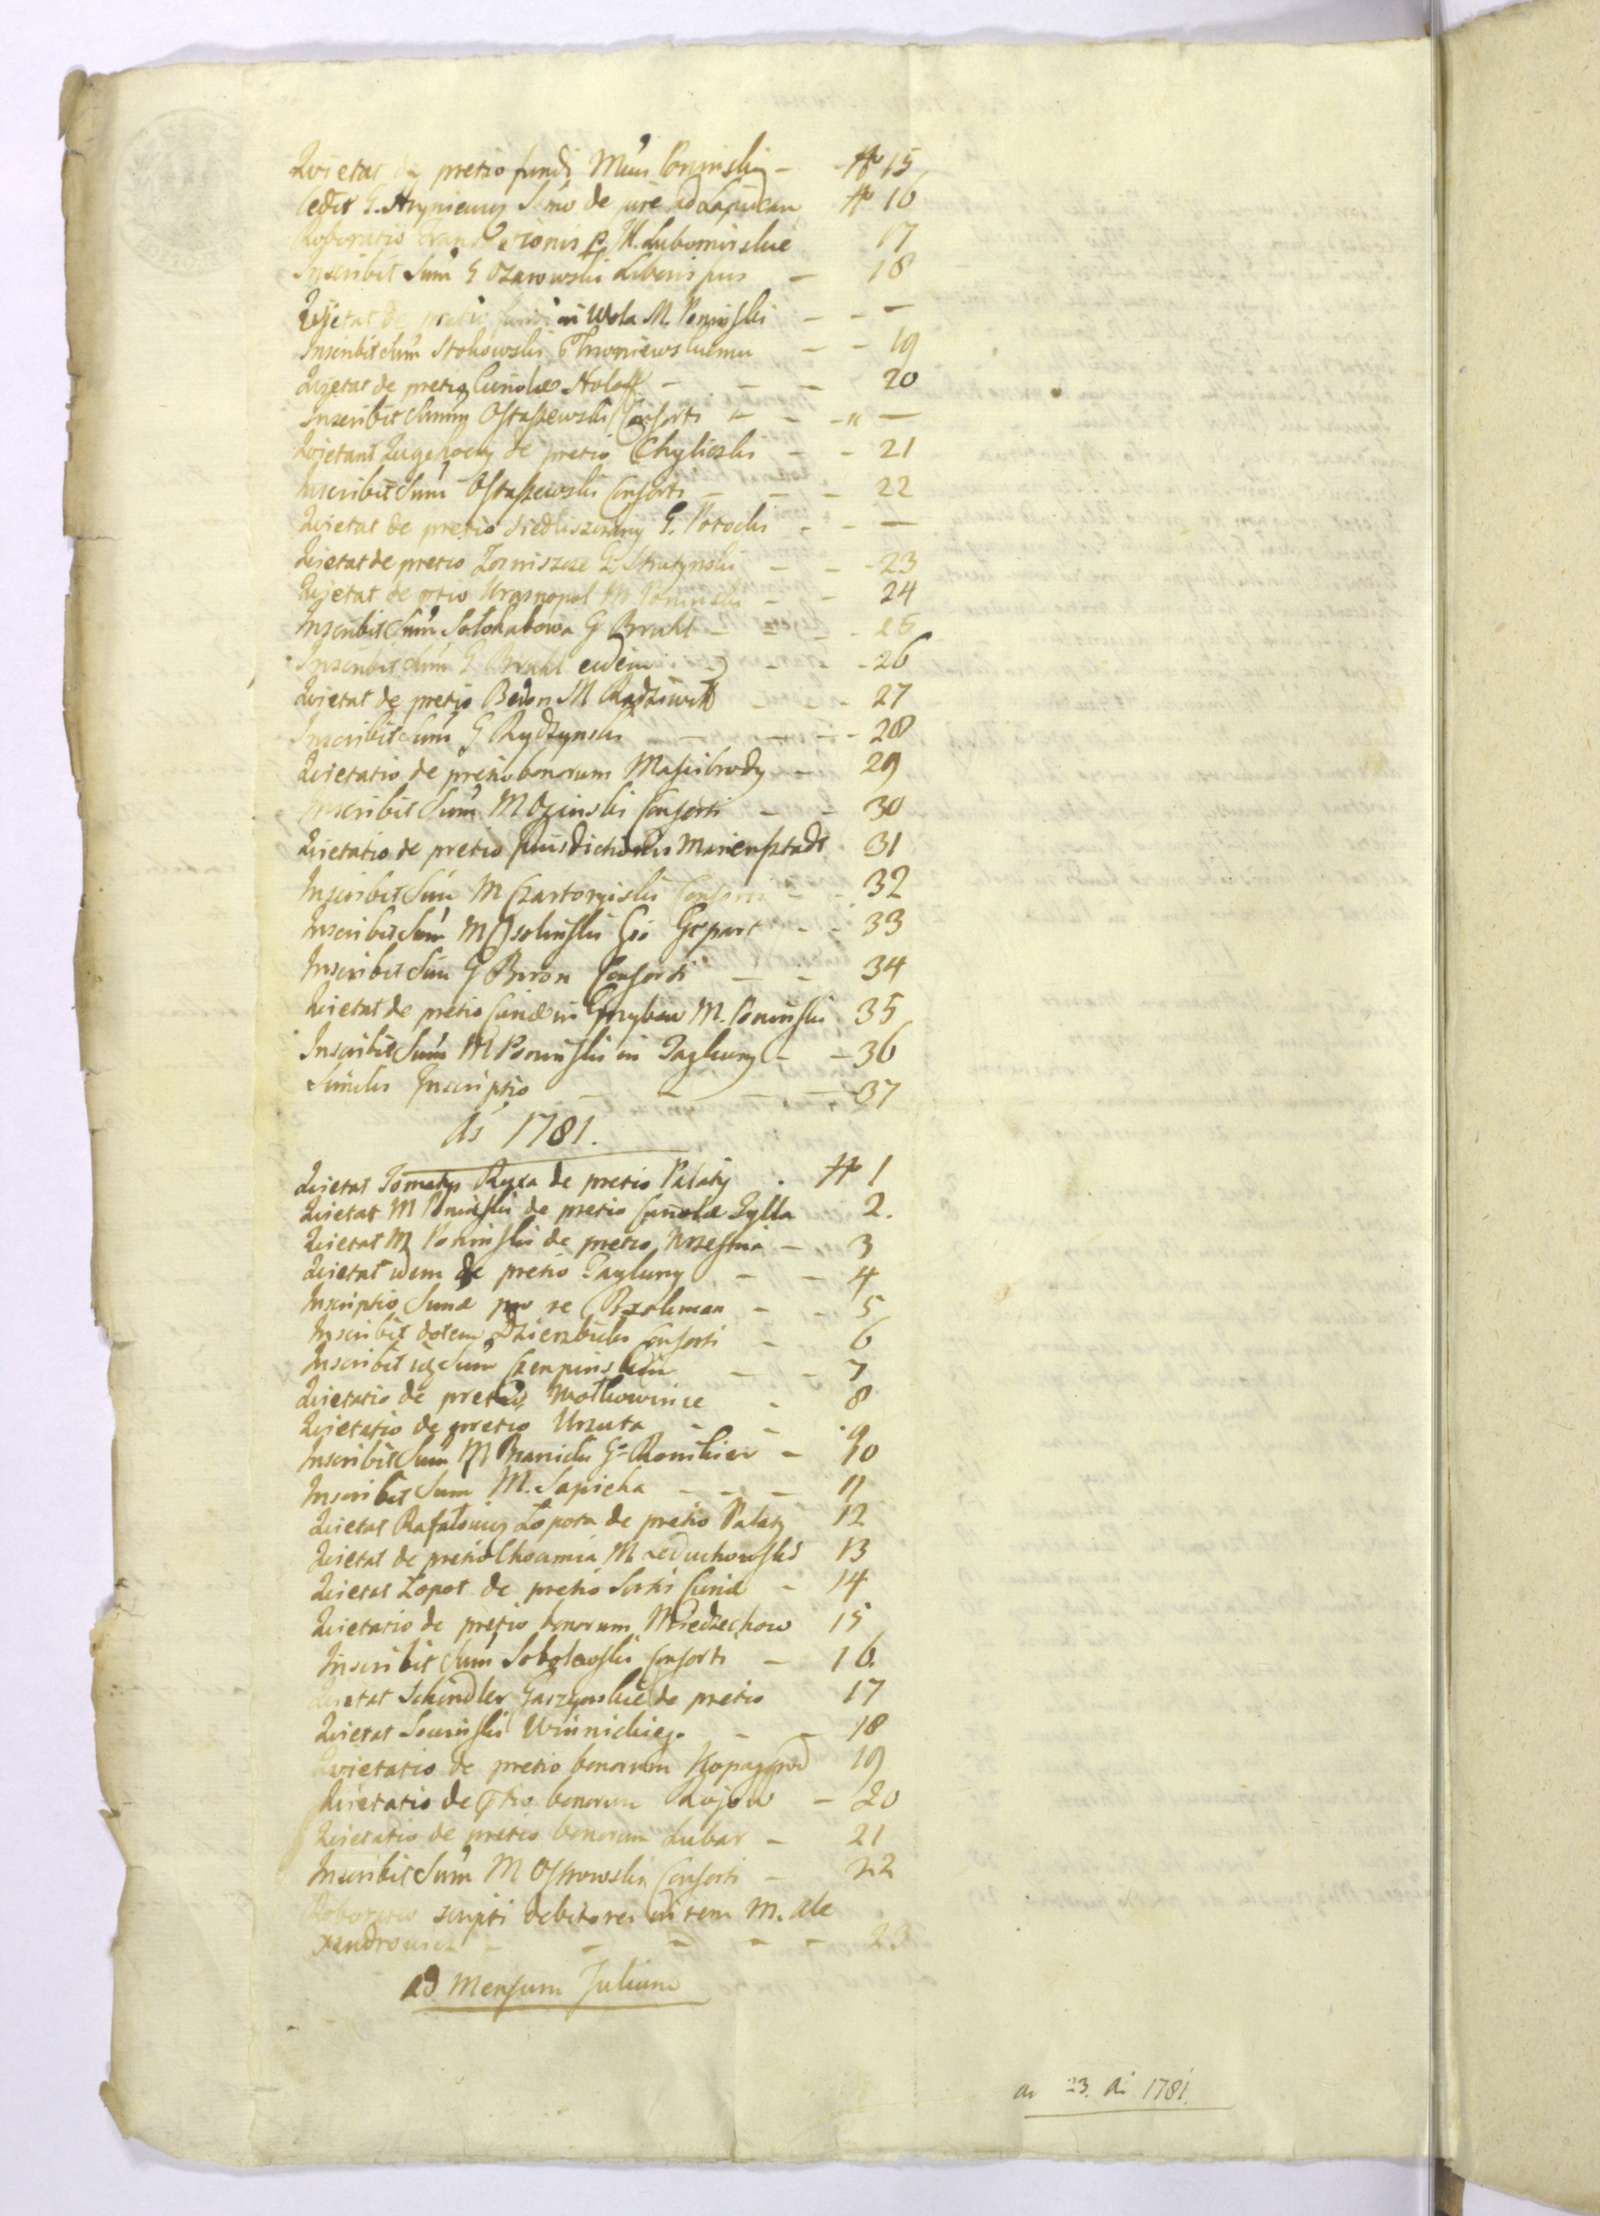 Quietat de pretio fundi Mius Poninski - - № 15
Cedit G. Hryniewicz Smo de jure ad Lapidcam № 16
Roboratio transactionis p. Il. Lubomirskie 17
Inscribit Sum G Ozarowski Liberis suis - 18
Quietat de pretio fundi in Wola M. Poninski - - -
Inscribit Sum Stokowski Chroniewskiemu - - 19
Quietat de pretio Curiolae Holoff - - - 20
Inscribit Summ Ostaszewski Consorti - - - " -
Quietant de pretio Chyliczki - - 21
Inscribit Sum Ostaszewski Consorti - - - 22
Quietat de pretio G. Potocki - - -
Quietat de pretio Zorniszcze G. Strutynski - - - 23
Quietat de ptio Krasnopol M Poninski - - 24
Inscribit Sum Solohubowa G Bruhl - - - 25
Inscribit Sum G Bruhl eidem - - - 26
Quietat de pretio Bedon M Radziwill - - - 27
Inscribit Sum G Rydzynski - - - 28
Quietatio de pretio bonorum Masiibrody - 29
Inscribit Sum M Oginski Consorti - - 30
Quietatio de pretio Jurisdictionis Marienstadt 31
Inscribit Sum M Czartoryiski Consorti - - 32
Inscribit Sum M Ossolinski Gepart - - 33
Inscribit Sum G Biron Consorti - - 34
Quietat de pretio Curiae in Grzybow M. Poninski 35
Inscribit Sum M Poninski in Taykury - - 36
Similis Inscriptio - - - - 37
Ai 1781.
Quietat Tomatys Ryxa de pretio Palaty . № 1
Quietat M Poninski de pretio Curiolae Tylla 2.
Quietat M Poninski de pretio - 3
Quietat idem de pretio Taykury - - 4
Inscriptio Sumae pro re Brokman - - 5
Inscribit dotem Dzierzbicki Consorti - 6
Inscribit Sum Czempinskim - - 7
Quietatio de pretio Wolkowince - 8
Quietatio de pretio Urzuta - - 9
Inscribit Sum M Branicki G. Ronikier - 10
Inscribit Sum M. Sapieha - - - 11
Quietat Rafalowicz Lopota de pretio Palaty 12
Quietat de pretio M Leduchowski 13
Quietat Lopot de pretio Sortis Curiae - 14
Quietatio de pretio bonorum Miedzechow 15
Inscribit Sum Sobolewski Consorti - 16.
Quietat Schindler Garzynskie de pretio 17
Quietat Sowinski Winnickieg. - - 18
Quietatio de pretio bonorum Kopaygrod 19
Quietatio de ptio bonorum Kujow - 20
Quietatio de pretio bonorum Lubar - 21
Inscribit Sum M Ostrowski Consorti - 22
Roboratio scripti debitorei in rem M. Ale
xandrowicz - - - - - 23
ad Mensum Julium
ai 23. Ai 1781.